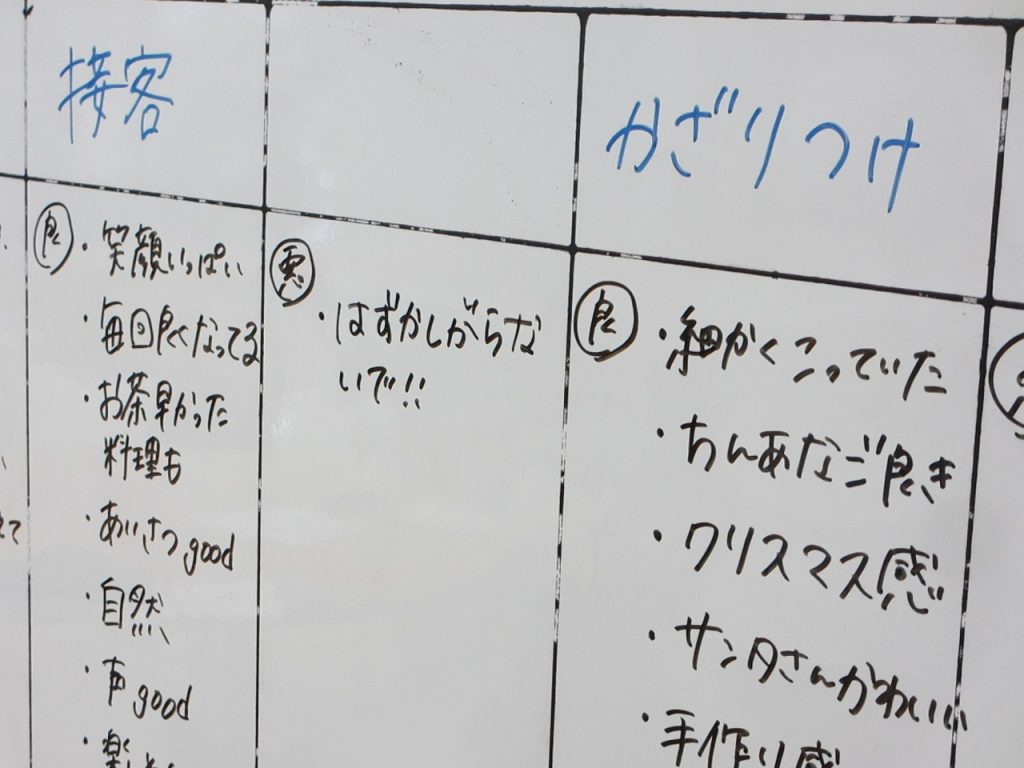 接客
かざりつけ
良
・笑顔いっぱい
・毎回良くなってる
・お茶早かった
料理も
・あいさつgood
・自然
・声good
・楽し
悪
・はずかしがらな
いで!!
良
・細かくこっていた
・ちんあなご良き
・クリスマス感
・サンタさんかわいい
・手作り感